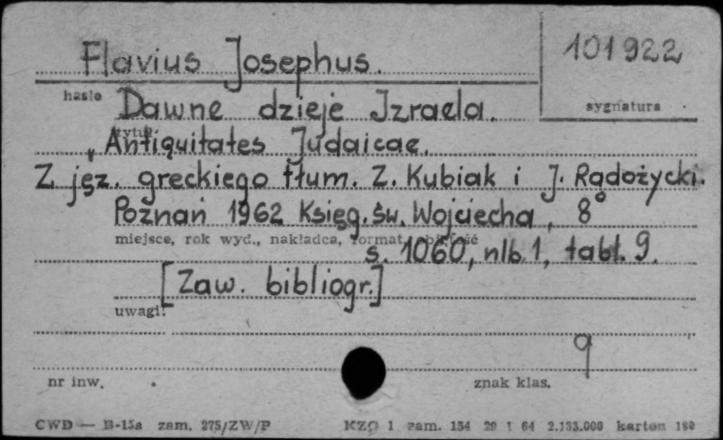 Flavius Josephus. 101922
hasło sygnatura
Dawne dzieje Izraela.
tytuł
„Antiquitates Judaicae.
Z jęz. greckiego tłum. Z. Kubiak i J. Radożycki.
Poznań 1962 Księg. św. Wojciecha, 8°
miejsce, rok wyd., nakładca, format, objętość
s. 1060, nlb. 1, tabl. 9.
[Zaw. bibliogr.]
uwagi:
9
nr inw. znak klas.
CWD — B-15a zam. 275/ZW/P KZG 1 zam. 154 29 1 64 2.133.000 karton 180